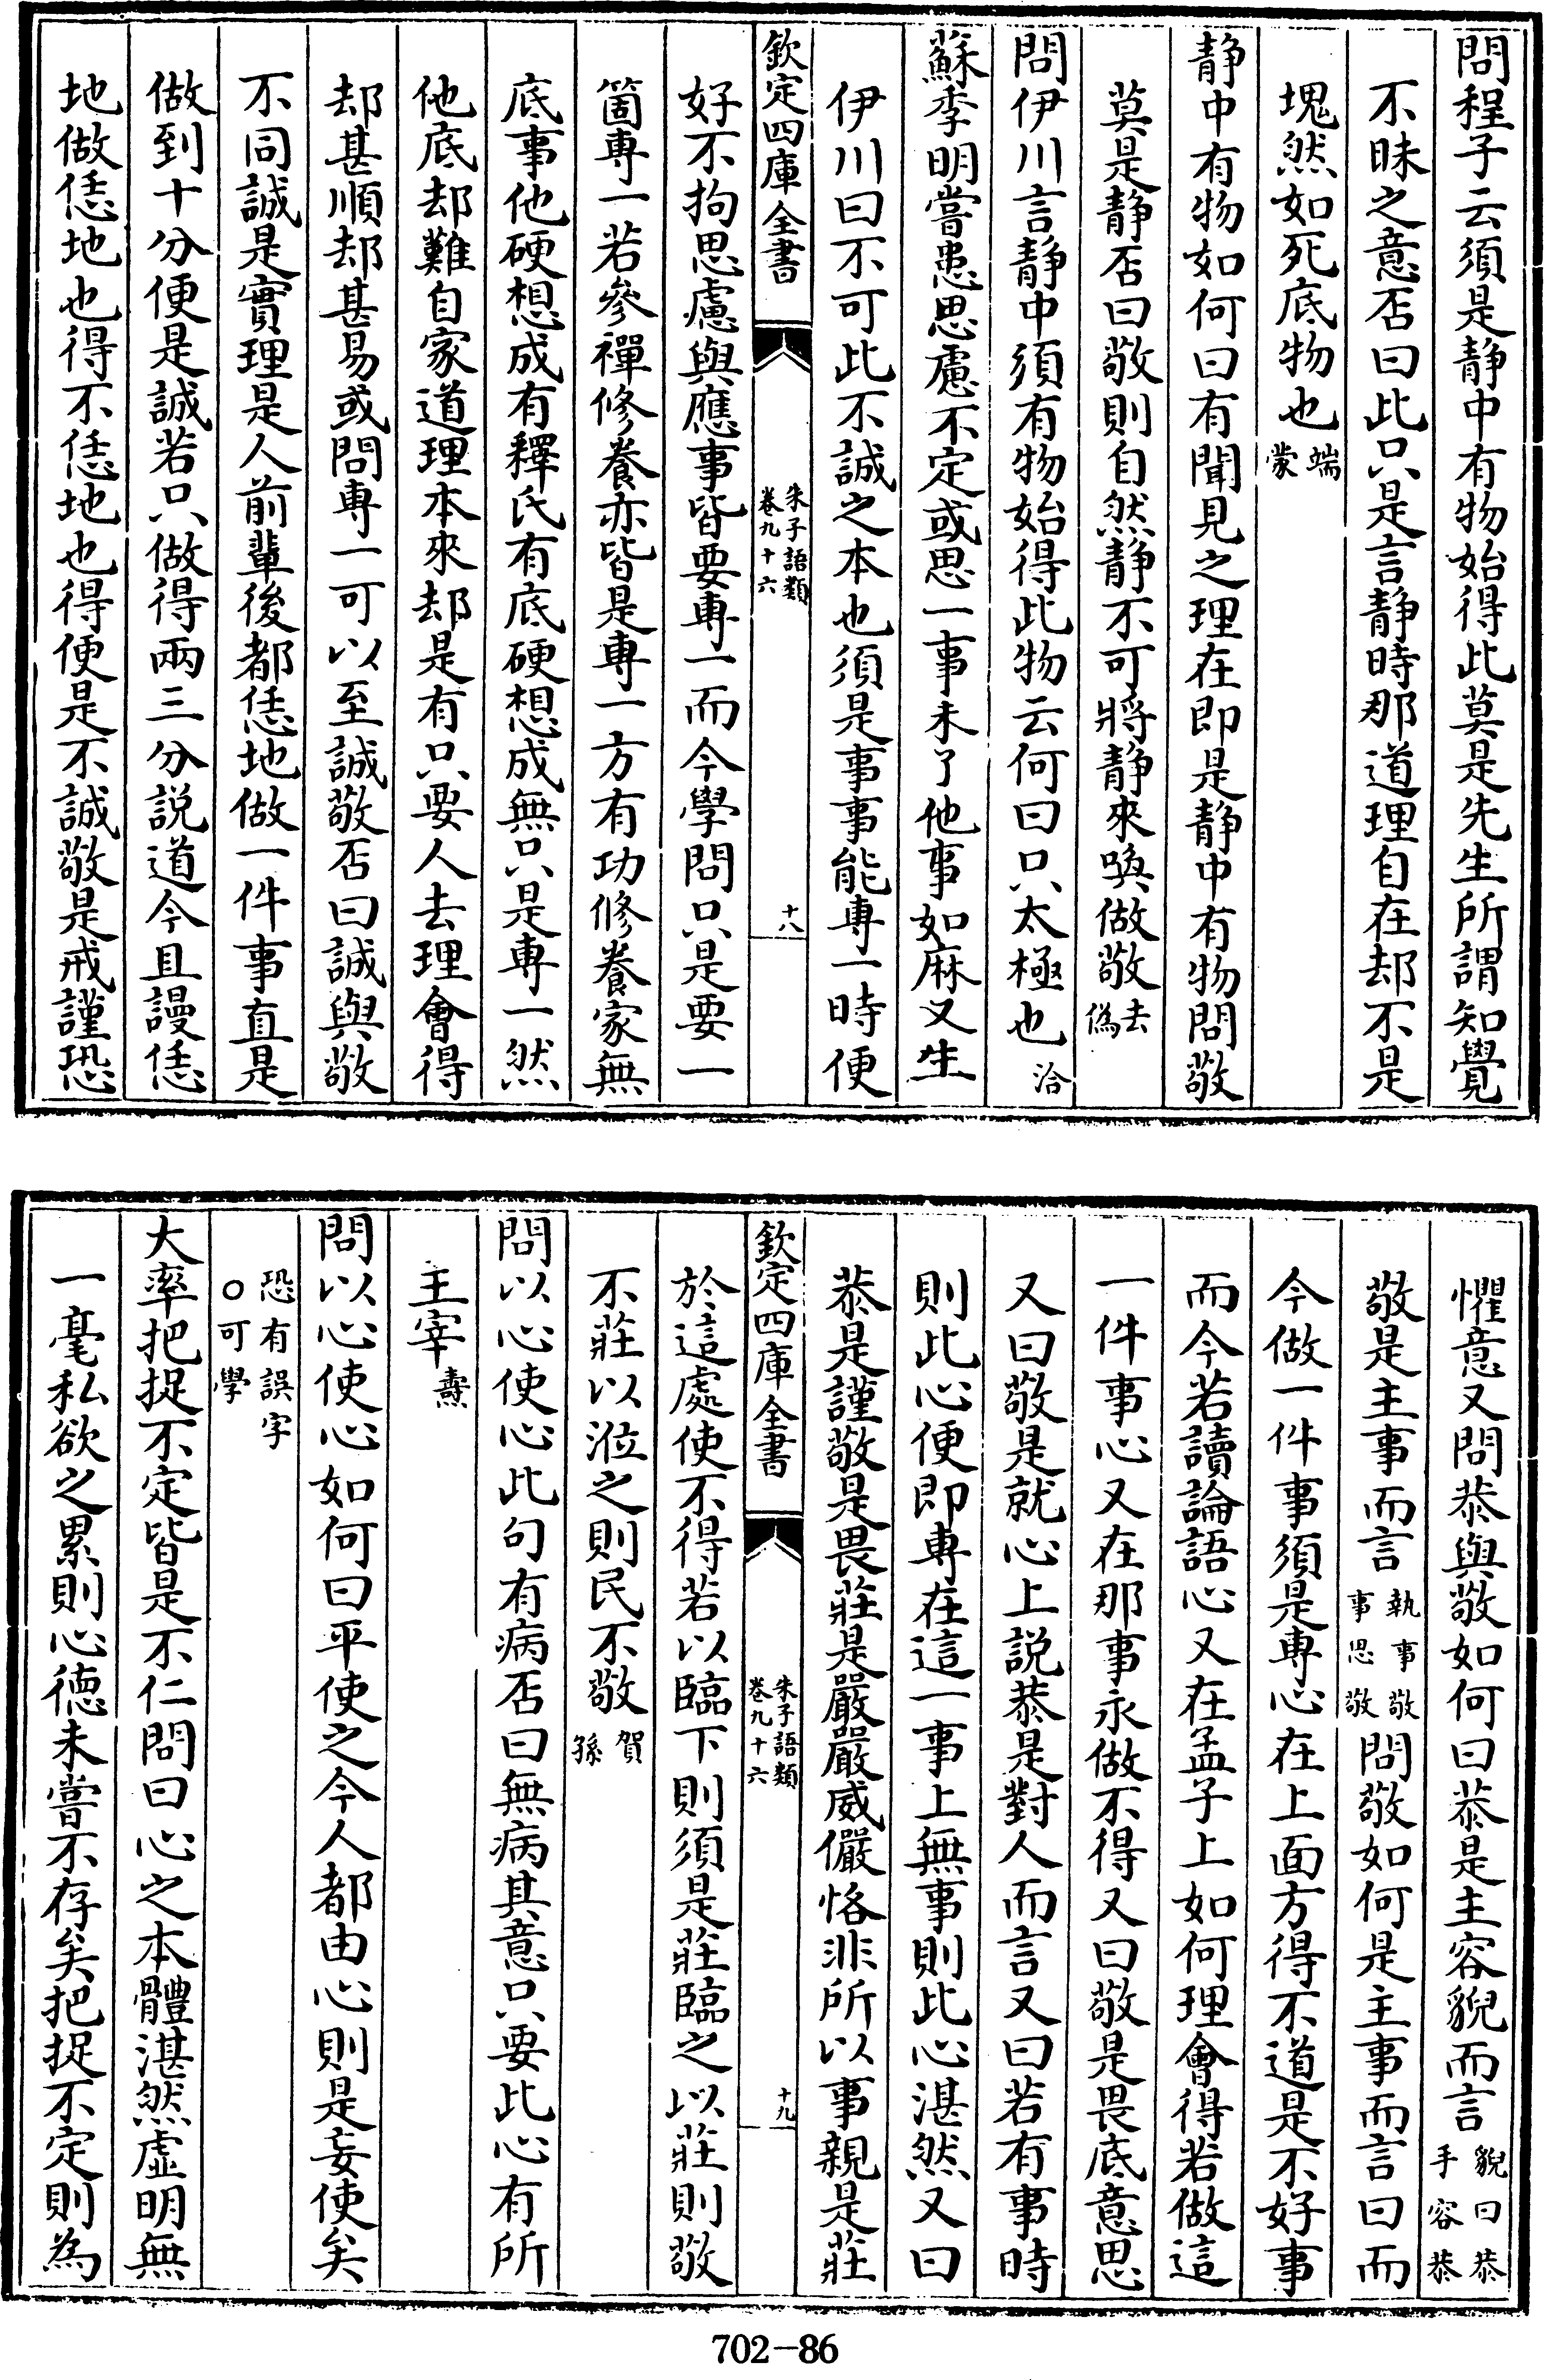 問程子云須是静中有物始得此莫是先生所謂知覺
不昧之意否曰此只是言静時那道理自在却不是
塊然如死底物也端蒙
静中有物如何曰有聞見之理在即是静中有物問敬
莫是静否曰敬則自然静不可將静來喚做敬去偽
問伊川言静中須有物始得此物云何曰只太極也洽
蘇季明嘗患思慮不定或思一事未了他事如麻又生
伊川曰不可此不誠之本也須是事事能專一時便
欽定四庫全書
朱子語類
卷九十六
十八
好不拘思慮與應事皆要專一而今學問只是要一
箇專一若參禪修養亦皆是專一方有功修養家無
底事他硬想成有釋氏有底硬想成無只是專一然
他底却難自家道理本來却是有只要人去理會得
却甚順却甚易或問專一可以至誠敬否曰誠與敬
不同誠是實理是人前輩後都恁地做一件事直是
做到十分便是誠若只做得兩三分説道今且謾恁
地做恁地也得不恁地也得便是不誠敬是戒謹恐
懼意又問恭與敬如何曰恭是主容貌而言貌曰恭
手容恭
敬是主事而言執事敬
事思敬問敬如何是主事而言曰而
今做一件事須是專心在上面方得不道是不好事
而今若讀論語心又在孟子上如何理會得若做這
一件事心又在那事永做不得又曰敬是畏底意思
又曰敬是就心上説恭是對人而言又曰若有事時
則此心便即專在這一事上無事則此心湛然又曰
恭是謹敬是畏莊是嚴嚴威儼恪非所以事親是莊
欽定四庫全書
朱子語類
卷九十六
十九
於這處使不得若以臨下則須是莊臨之以莊則敬
不莊以涖之則民不敬賀孫
問以心使心此句有病否曰無病其意只要此心有所
主宰燾
問以心使心如何曰平使之今人都由心則是妄使矣
恐有誤字
○可學
大率把捉不定皆是不仁問曰心之本體湛然虚明無
一毫私欲之累則心德未嘗不存矣把捉不定則為
702-86